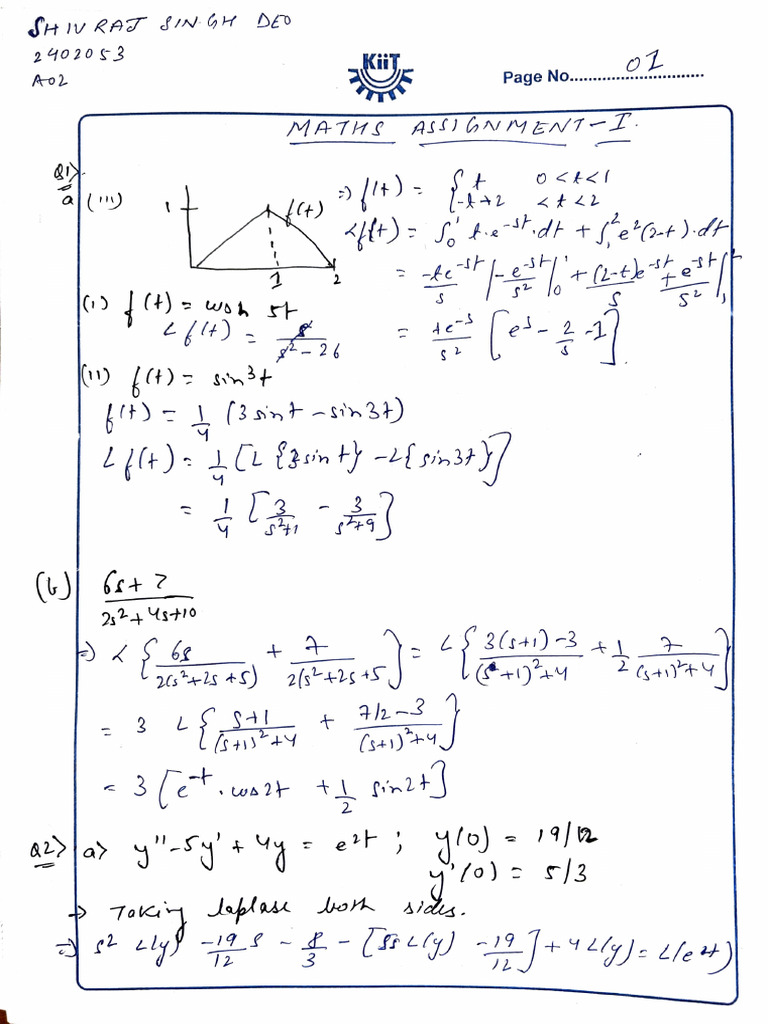 SHIVRAJ SINGH DEO
2402053
A02
KiiT
Page No. 01
MATHS ASSIGNMENT-I.
Q1>
a (iii) 1 f(t) 1 2
=> f(t) = { t 0<t<1
-t+2 <t<2
Lf(t) = ∫₀¹ t.e^-st.dt + ∫₁² e²(2-t).dt
= -te^-st/s |-e^-st/s² |₀¹ + (2-t)e^-st/s + e^-st/s² |₁²
= +e^-s/s² [e^s - 2/s - 1].
(i) f(t) = cosh 5t
Lf(t) = s/s²-26
(ii) f(t) = sin³t
f(t) = 1/4 (3sint - sin3t)
Lf(t) = 1/4 [L{3sint} - L{sin3t}]
= 1/4 [3/s²+1 - 3/s²+9]
(b) 6s+7/2s²+4s+10
=> L{6s/2(s²+2s+5) + 7/2(s²+2s+5)} = L{3(s+1)-3/(s+1)²+4 + 1/2 7/(s+1)²+4}
= 3 L{s+1/(s+1)²+4 + 7/2-3/(s+1)²+4}
= 3[e^-t.cos2t + 1/2 sin2t]
Q2> a> y''-5y'+4y = e^2t ; y(0) = 19/12
y'(0) = 5/3
→ Taking laplase both sides.
=> s² L(y) -19/12 s - 8/3 - [5s L(y) -19/12] + 4L(y) = L(e^2t)